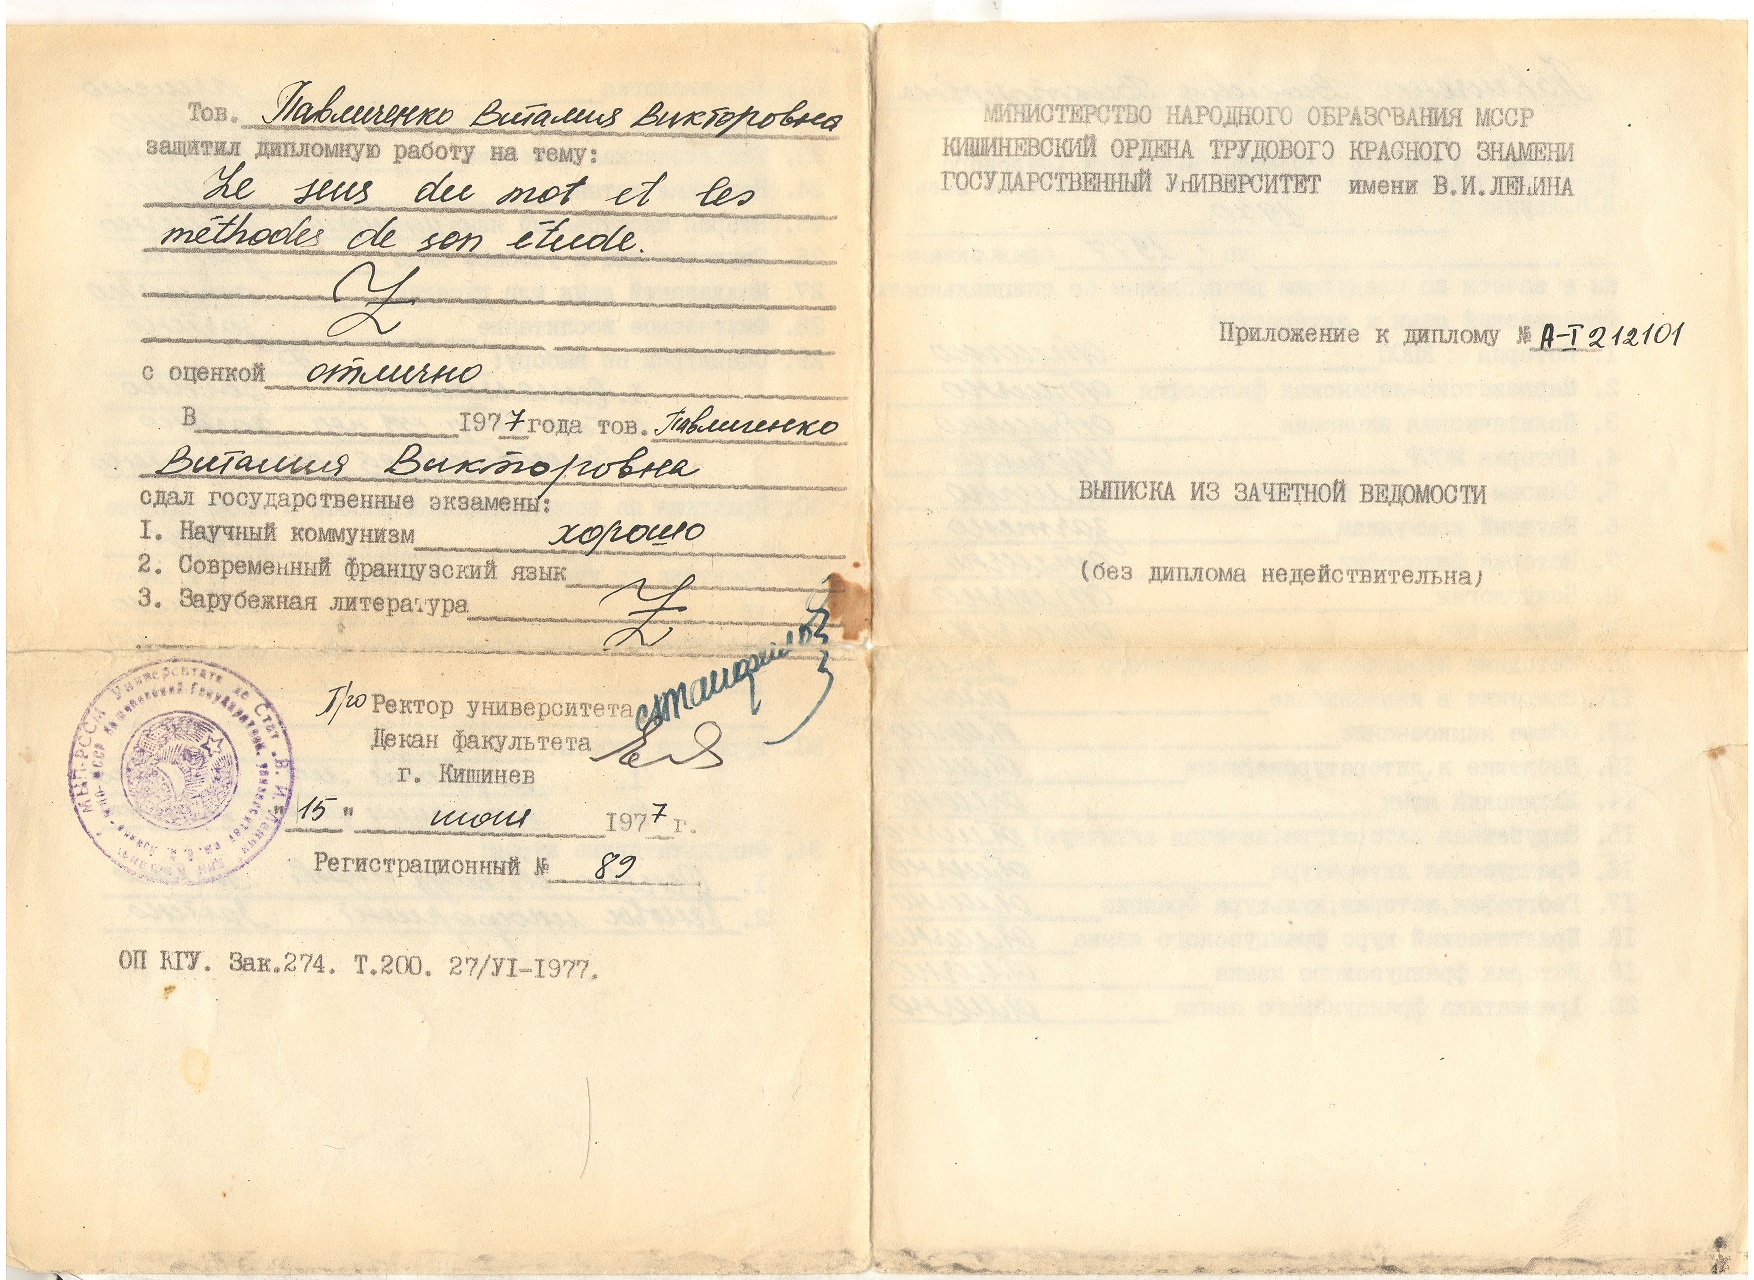 Тов. Павличенко Виталия Викторовна
защитил дипломную работу на тему:
Le sens du mot et les
méthodes de son étude.
Z
с оценкой отлично
В 1977 года тов. Павличенко
Виталия Викторовна
сдал государственные экзамены:
1. Научный коммунизм хорошо
2. Современный французский язык
3. Зарубежная литература
Z
Про Ректор университета
Декан факультета
г. Кишинев
"15" июля 1977 г.
Регистрационный № 89
ОП КГУ. Зак.274. Т.200. 27/УI-1977.
МИНИСТЕРСТВО НАРОДНОГО ОБРАЗОВАНИЯ МССР
КИШИНЕВСКИЙ ОРДЕНА ТРУДОВОГО КРАСНОГО ЗНАМЕНИ
ГОСУДАРСТВЕННЫЙ УНИВЕРСИТЕТ имени В.И.ЛЕНИНА
Приложение к диплому № А-I 212101
ВЫПИСКА ИЗ ЗАЧЕТНОЙ ВЕДОМОСТИ
(без диплома недействительна)